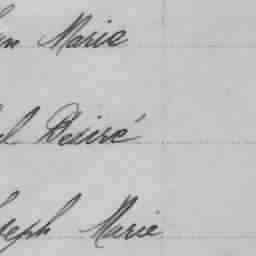 Marie
Désiré
Joseph Marie